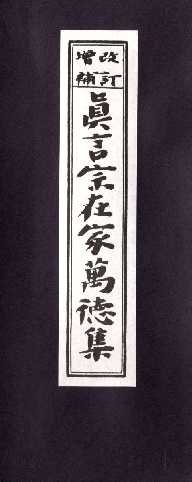 改訂
増補
眞言宗在家萬徳集